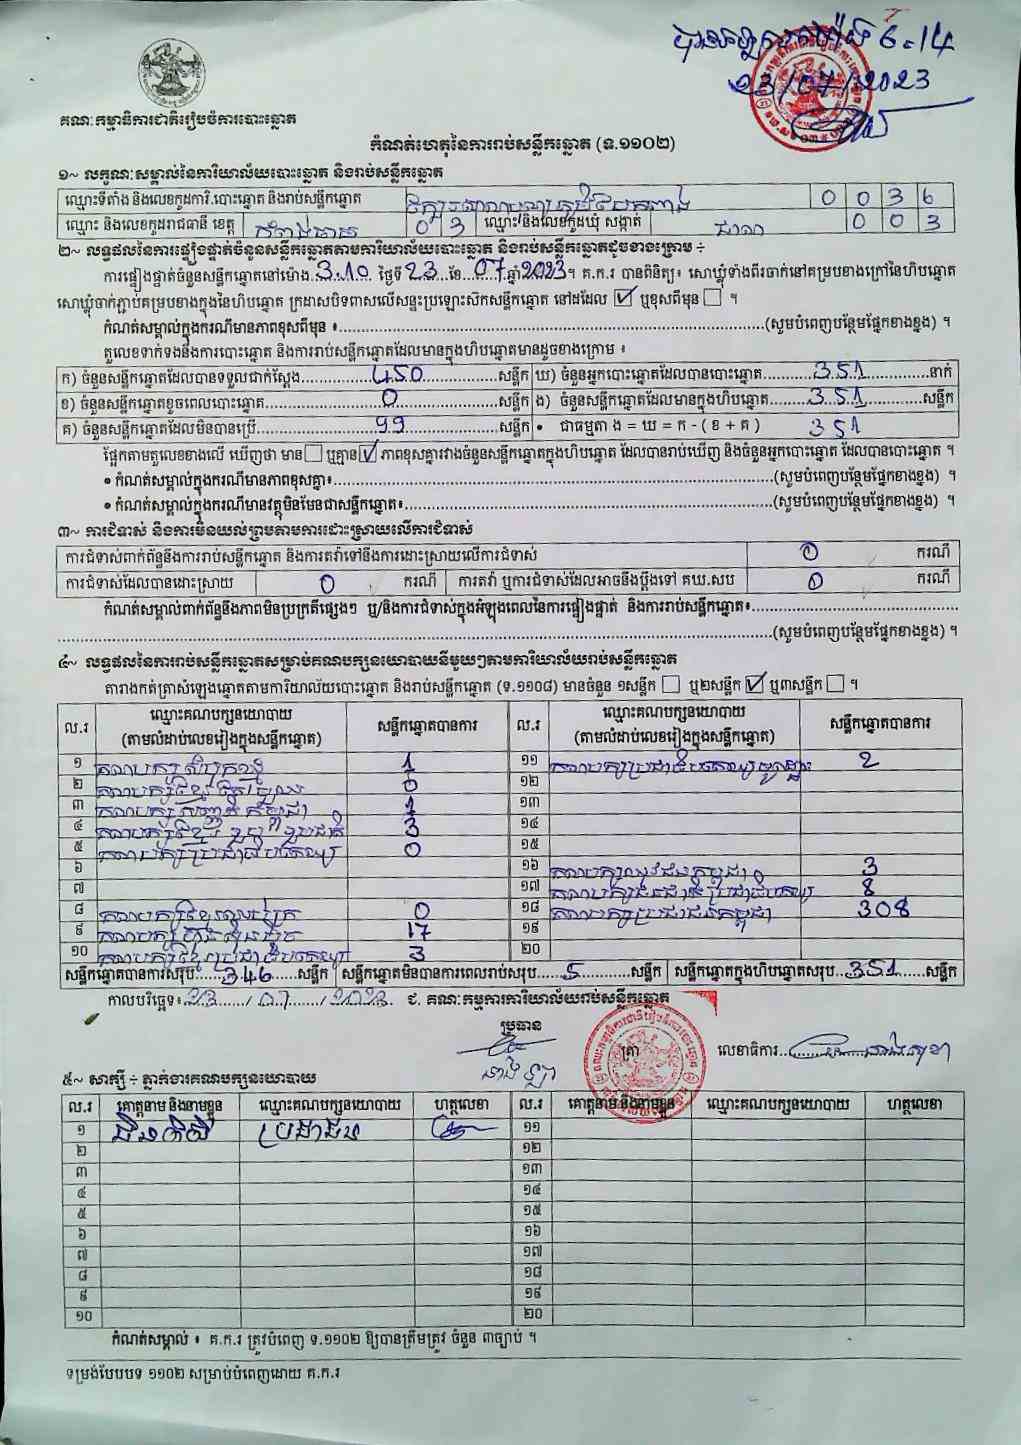 6:14
23/07/2023
គណៈកម្មាធិការជាតិរៀបចំការបោះឆ្នោត
កំណត់ហេតុនៃការរាប់សន្លឹកឆ្នោត (ទ.១១០២)
១~ លក្ខណៈសម្គាល់នៃការិយាល័យបោះឆ្នោត និងរាប់សន្លឹកឆ្នោត
ឈ្មោះទីតាំង និងលេខកូដការិ.បោះឆ្នោត និងរាប់សន្លឹកឆ្នោត 0 0 3 6
ឈ្មោះ និងលេខកូដរាជធានី ខេត្ត កំពង់ចាម 0 3 ឈ្មោះ និងលេខកូដឃុំ សង្កាត់ 0 0 3
២~ លទ្ធផលនៃការផ្ទៀងផ្ទាត់ចំនួនសន្លឹកឆ្នោតតាមការិយាល័យបោះឆ្នោត និងរាប់សន្លឹកឆ្នោតដូចខាងក្រោម ÷
ការផ្ទៀងផ្ទាត់ចំនួនសន្លឹកឆ្នោតនៅម៉ោង 3:10 ថ្ងៃទី 23 ខែ 07 ឆ្នាំ 2023 ។ គ.ក.រ បានពិនិត្យ៖ សោឃ្លុំទាំងពីរចាក់នៅគម្របខាងក្រៅនៃហិបឆ្នោត
សោឃ្លុំចាក់ភ្ជាប់គម្របខាងក្នុងនៃហិបឆ្នោត ក្រដាសបិទពាសលើសន្ទះប្រឡោះសិកសន្លឹកឆ្នោត នៅដដែល ☑ ឬខុសពីមុន ☐ ។
កំណត់សម្គាល់ក្នុងករណីមានភាពខុសពីមុន ៖ (សូមបំពេញបន្ថែមផ្នែកខាងខ្នង) ។
តួលេខទាក់ទងនឹងការបោះឆ្នោត និងការរាប់សន្លឹកឆ្នោតដែលមានក្នុងហិបឆ្នោតមានដូចខាងក្រោម ៖
ក) ចំនួនសន្លឹកឆ្នោតដែលបានទទួលជាក់ស្តែង 450 សន្លឹក ឃ) ចំនួនអ្នកបោះឆ្នោតដែលបានបោះឆ្នោត 351 នាក់
ខ) ចំនួនសន្លឹកឆ្នោតខូចពេលបោះឆ្នោត 0 សន្លឹក ង) ចំនួនសន្លឹកឆ្នោតដែលមានក្នុងហិបឆ្នោត 351 សន្លឹក
គ) ចំនួនសន្លឹកឆ្នោតដែលមិនបានប្រើ 99 សន្លឹក • ជាធម្មតា ង = ឃ = ក - ( ខ + គ ) 351
ផ្អែកតាមតួលេខខាងលើ ឃើញថា មាន ☐ ឬគ្មាន ☑ ភាពខុសគ្នារវាងចំនួនសន្លឹកឆ្នោតក្នុងហិបឆ្នោត ដែលបានរាប់ឃើញ និងចំនួនអ្នកបោះឆ្នោត ដែលបានបោះឆ្នោត ។
• កំណត់សម្គាល់ក្នុងករណីមានភាពខុសគ្នា៖ (សូមបំពេញបន្ថែមផ្នែកខាងខ្នង) ។
• កំណត់សម្គាល់ក្នុងករណីមានវត្ថុមិនមែនជាសន្លឹកឆ្នោត៖ (សូមបំពេញបន្ថែមផ្នែកខាងខ្នង) ។
៣~ ការជំទាស់ និងការមិនយល់ព្រមតាមការដោះស្រាយលើការជំទាស់
ការជំទាស់ពាក់ព័ន្ធនឹងការរាប់សន្លឹកឆ្នោត និងការតវ៉ាទៅនឹងការដោះស្រាយលើការជំទាស់ 0 ករណី
ការជំទាស់ដែលបានដោះស្រាយ 0 ករណី ការតវ៉ា ឬការជំទាស់ដែលអាចនឹងប្តឹងទៅ គឃ.សប 0 ករណី
កំណត់សម្គាល់ពាក់ព័ន្ធនឹងភាពមិនប្រក្រតីផ្សេងៗ ឬ/និងការជំទាស់ក្នុងអំឡុងពេលនៃការផ្ទៀងផ្ទាត់ និងការរាប់សន្លឹកឆ្នោត៖
(សូមបំពេញបន្ថែមផ្នែកខាងខ្នង) ។
៤~ លទ្ធផលនៃការរាប់សន្លឹកឆ្នោតសម្រាប់គណបក្សនយោបាយនីមួយៗតាមការិយាល័យរាប់សន្លឹកឆ្នោត
តារាងកត់ត្រាសំឡេងឆ្នោតតាមការិយាល័យបោះឆ្នោត និងរាប់សន្លឹកឆ្នោត (ទ.១១០៨) មានចំនួន ១សន្លឹក ☐ ឬ២សន្លឹក ☑ ឬ៣សន្លឹក ☐ ។
ល.រ ឈ្មោះគណបក្សនយោបាយ (តាមលំដាប់លេខរៀងក្នុងសន្លឹកឆ្នោត) សន្លឹកឆ្នោតបានការ ល.រ ឈ្មោះគណបក្សនយោបាយ (តាមលំដាប់លេខរៀងក្នុងសន្លឹកឆ្នោត) សន្លឹកឆ្នោតបានការ
១ 1 ១១ 2
២ 0 ១២
៣ 1 ១៣
៤ គណបក្សខ្មែរ រួបរួមជាតិ 3 ១៤
៥ 0 ១៥
៦ ១៦ 3
៧ ១៧ 8
៨ 0 ១៨ គណបក្សប្រជាជនកម្ពុជា 308
៩ គណបក្សហ៊្វុនស៊ិនប៉ិច 17 ១៩
១០ 3 ២០
សន្លឹកឆ្នោតបានការសរុប 346 សន្លឹក សន្លឹកឆ្នោតមិនបានការពេលរាប់សរុប 5 សន្លឹក សន្លឹកឆ្នោតក្នុងហិបឆ្នោតសរុប 351 សន្លឹក
កាលបរិច្ឆេទ៖ 23 / 07 / 2023 ជ. គណៈកម្មការការិយាល័យរាប់សន្លឹកឆ្នោត
ប្រធាន ត្រា លេខាធិការ
៥~ សាក្សី ÷ ភ្នាក់ងារគណបក្សនយោបាយ
ល.រ គោត្តនាម និងនាមខ្លួន ឈ្មោះគណបក្សនយោបាយ ហត្ថលេខា ល.រ គោត្តនាម និងនាមខ្លួន ឈ្មោះគណបក្សនយោបាយ ហត្ថលេខា
១ ប្រជាជន ១១
២ ១២
៣ ១៣
៤ ១៤
៥ ១៥
៦ ១៦
៧ ១៧
៨ ១៨
៩ ១៩
១០ ២០
កំណត់សម្គាល់ ៖ គ.ក.រ ត្រូវបំពេញ ទ.១១០២ ឱ្យបានត្រឹមត្រូវ ចំនួន ៣ច្បាប់ ។
ទម្រង់បែបបទ ១១០២ សម្រាប់បំពេញដោយ គ.ក.រ